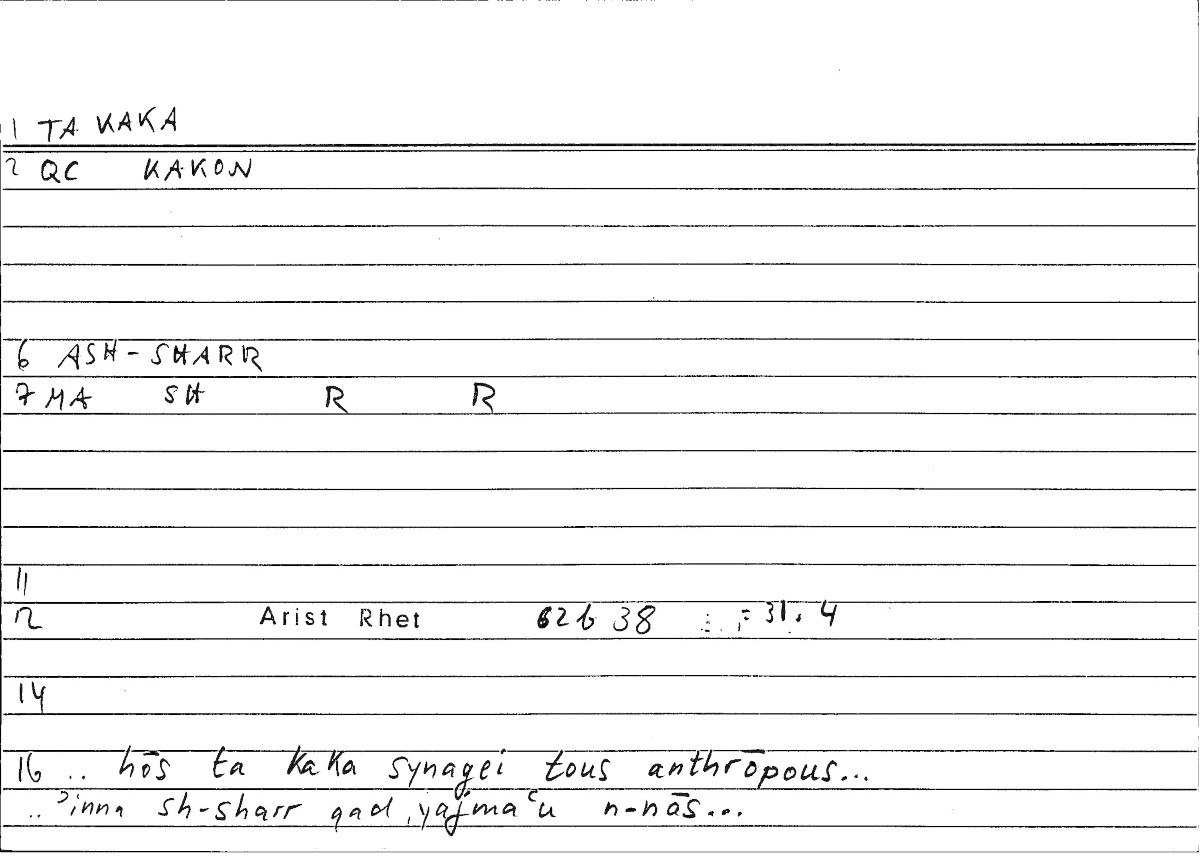 1 TA KAKA
2 QC KAKON
6 ASH-SHARR
7 MA SH R R
11
12 Arist Rhet 62b38 = 31,4
14
16 .. hōs ta kaka synagei tous anthrōpous...
.. ʾinna sh-sharr qad yajmaʿu n-nās...